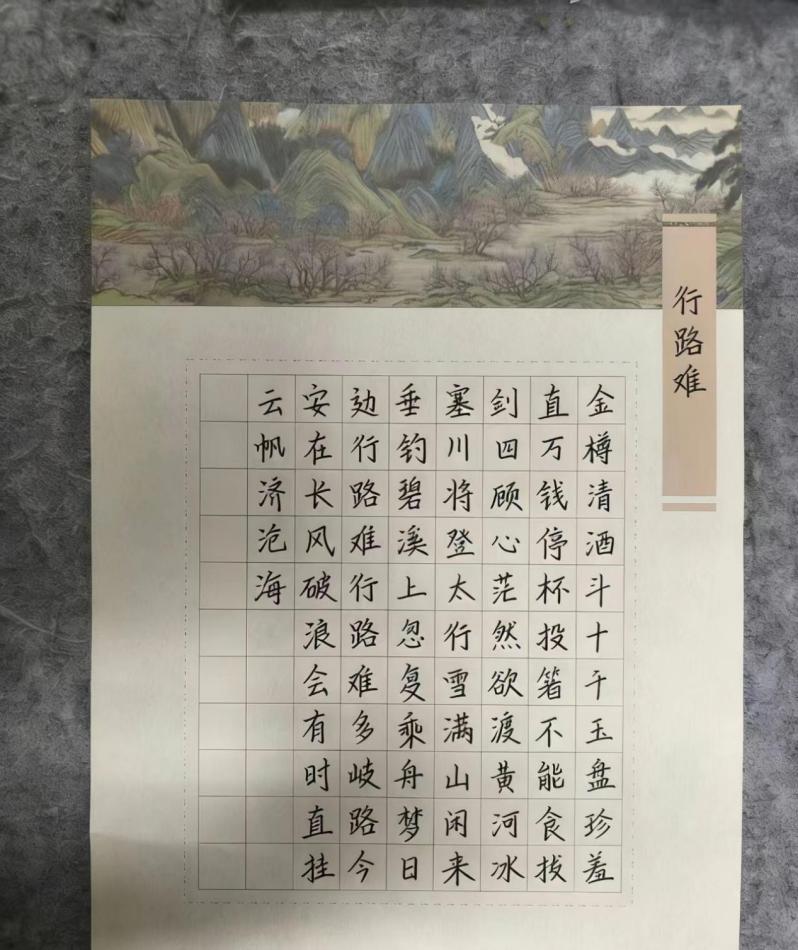 行路难
金樽清酒斗十千玉盘珍羞
直万钱停杯投箸不能食拔
剑四顾心茫然欲渡黄河冰
塞川将登太行雪满山闲来
垂钓碧溪上忽复乘舟梦日
边行路难行路难多岐路今
安在长风破浪会有时直挂
云帆济沧海